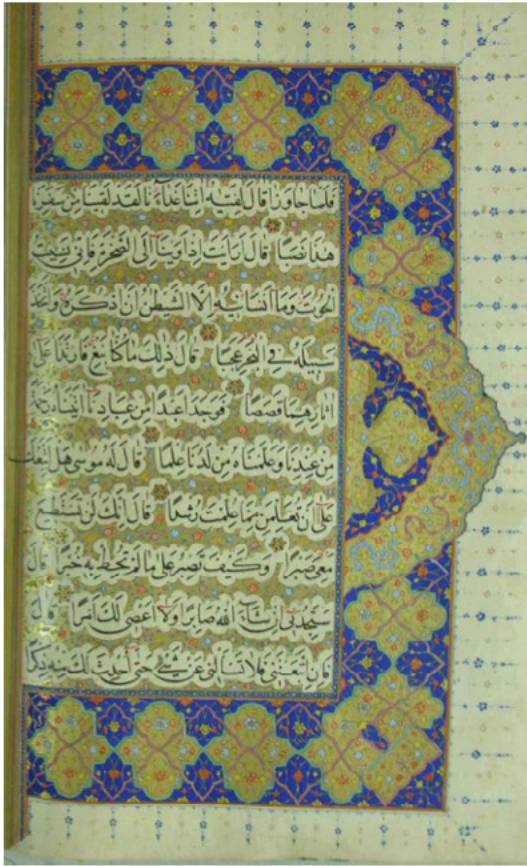 فلما جاوزا قال لفتیه اتنا غداءنا لقد لقینا من سفرنا
هذا نصبا قال ارایت اذ اوینا الی الصخرة فانی نسیت
الحوت وما انسانیه الا الشیطن ان اذکره واتخذ
سبیله فی البحر عجبا قال ذلك ما کنا نبغ فارتدا علی
اثارهما قصصا فوجدا عبدا من عبادنا اتیناه رحمة
من عندنا وعلمناه من لدنا علما قال له موسی هل اتبعك
علی ان تعلمن مما علمت رشدا قال انك لن تستطیع
معی صبرا وکیف تصبر علی ما لم تحط به خبرا قال
ستجدنی ان شاء الله صابرا ولا اعصی لك امرا قال
فان اتبعتنی فلا تسالنی عن شیء حتی احدث لك منه ذکرا